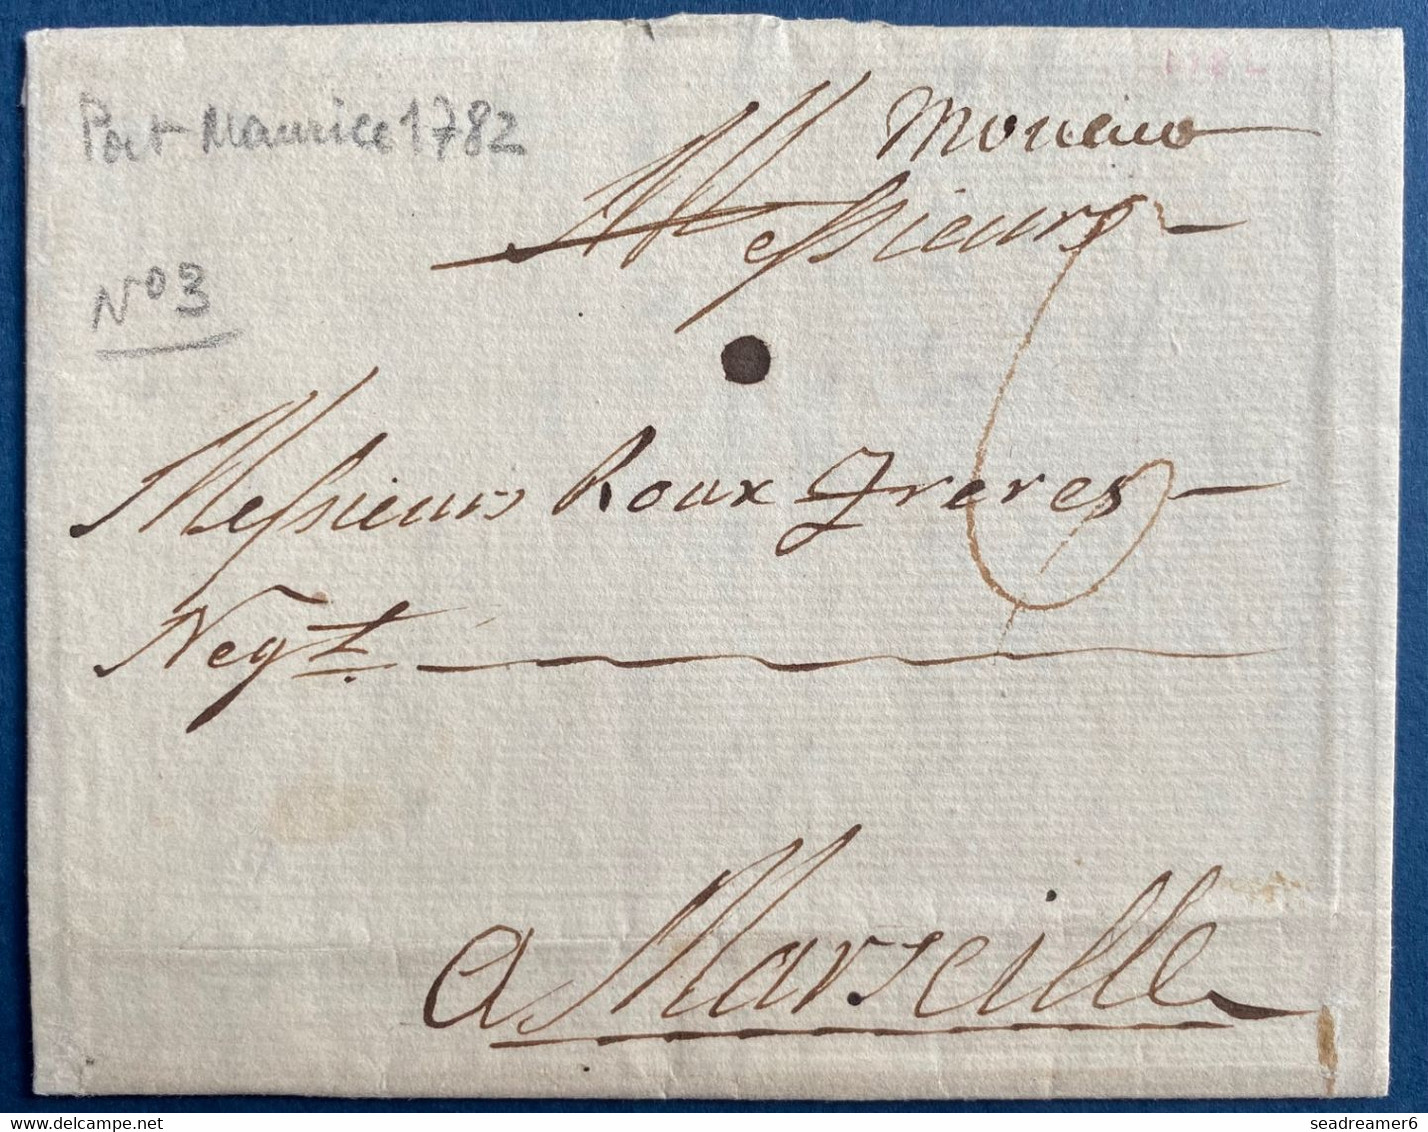 Port-Maurice 1782
Monaco
Messieurs
N° 3
Messieurs Roux freres
Negt.
a Marseille
seadreamer6
www.delcampe.net